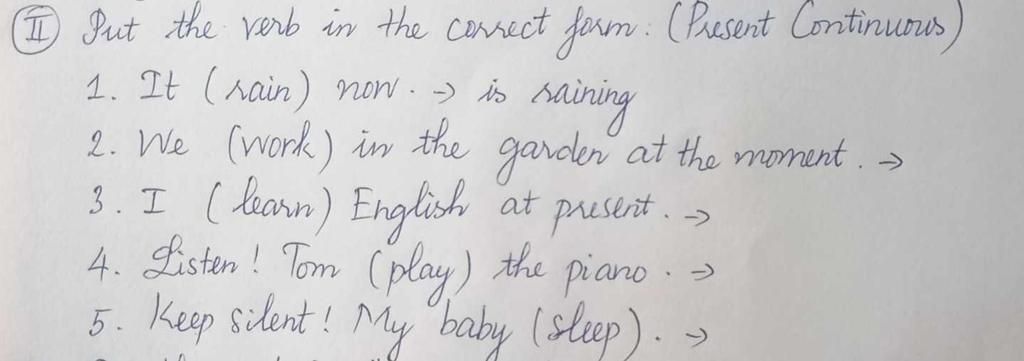 II Put the verb in the correct form: (Present Continuous)
1. It (rain) now. → is raining
2. We (work) in the garden at the moment. →
3. I (learn) English at present. →
4. Listen! Tom (play) the piano. →
5. Keep silent! My baby (sleep). →